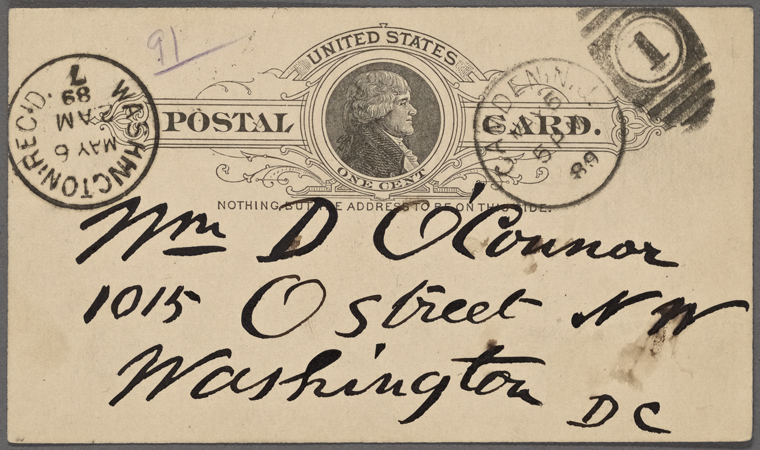 91
UNITED STATES
POSTAL CARD.
ONE CENT
NOTHING BUT THE ADDRESS TO BE ON THIS SIDE.
WASHINGTON REC'D.
MAY 6
2 AM
89
7
CAMDEN, N.J.
5 PM
89
1
Wm D O'Connor
1015 O street N W
Washington
D C